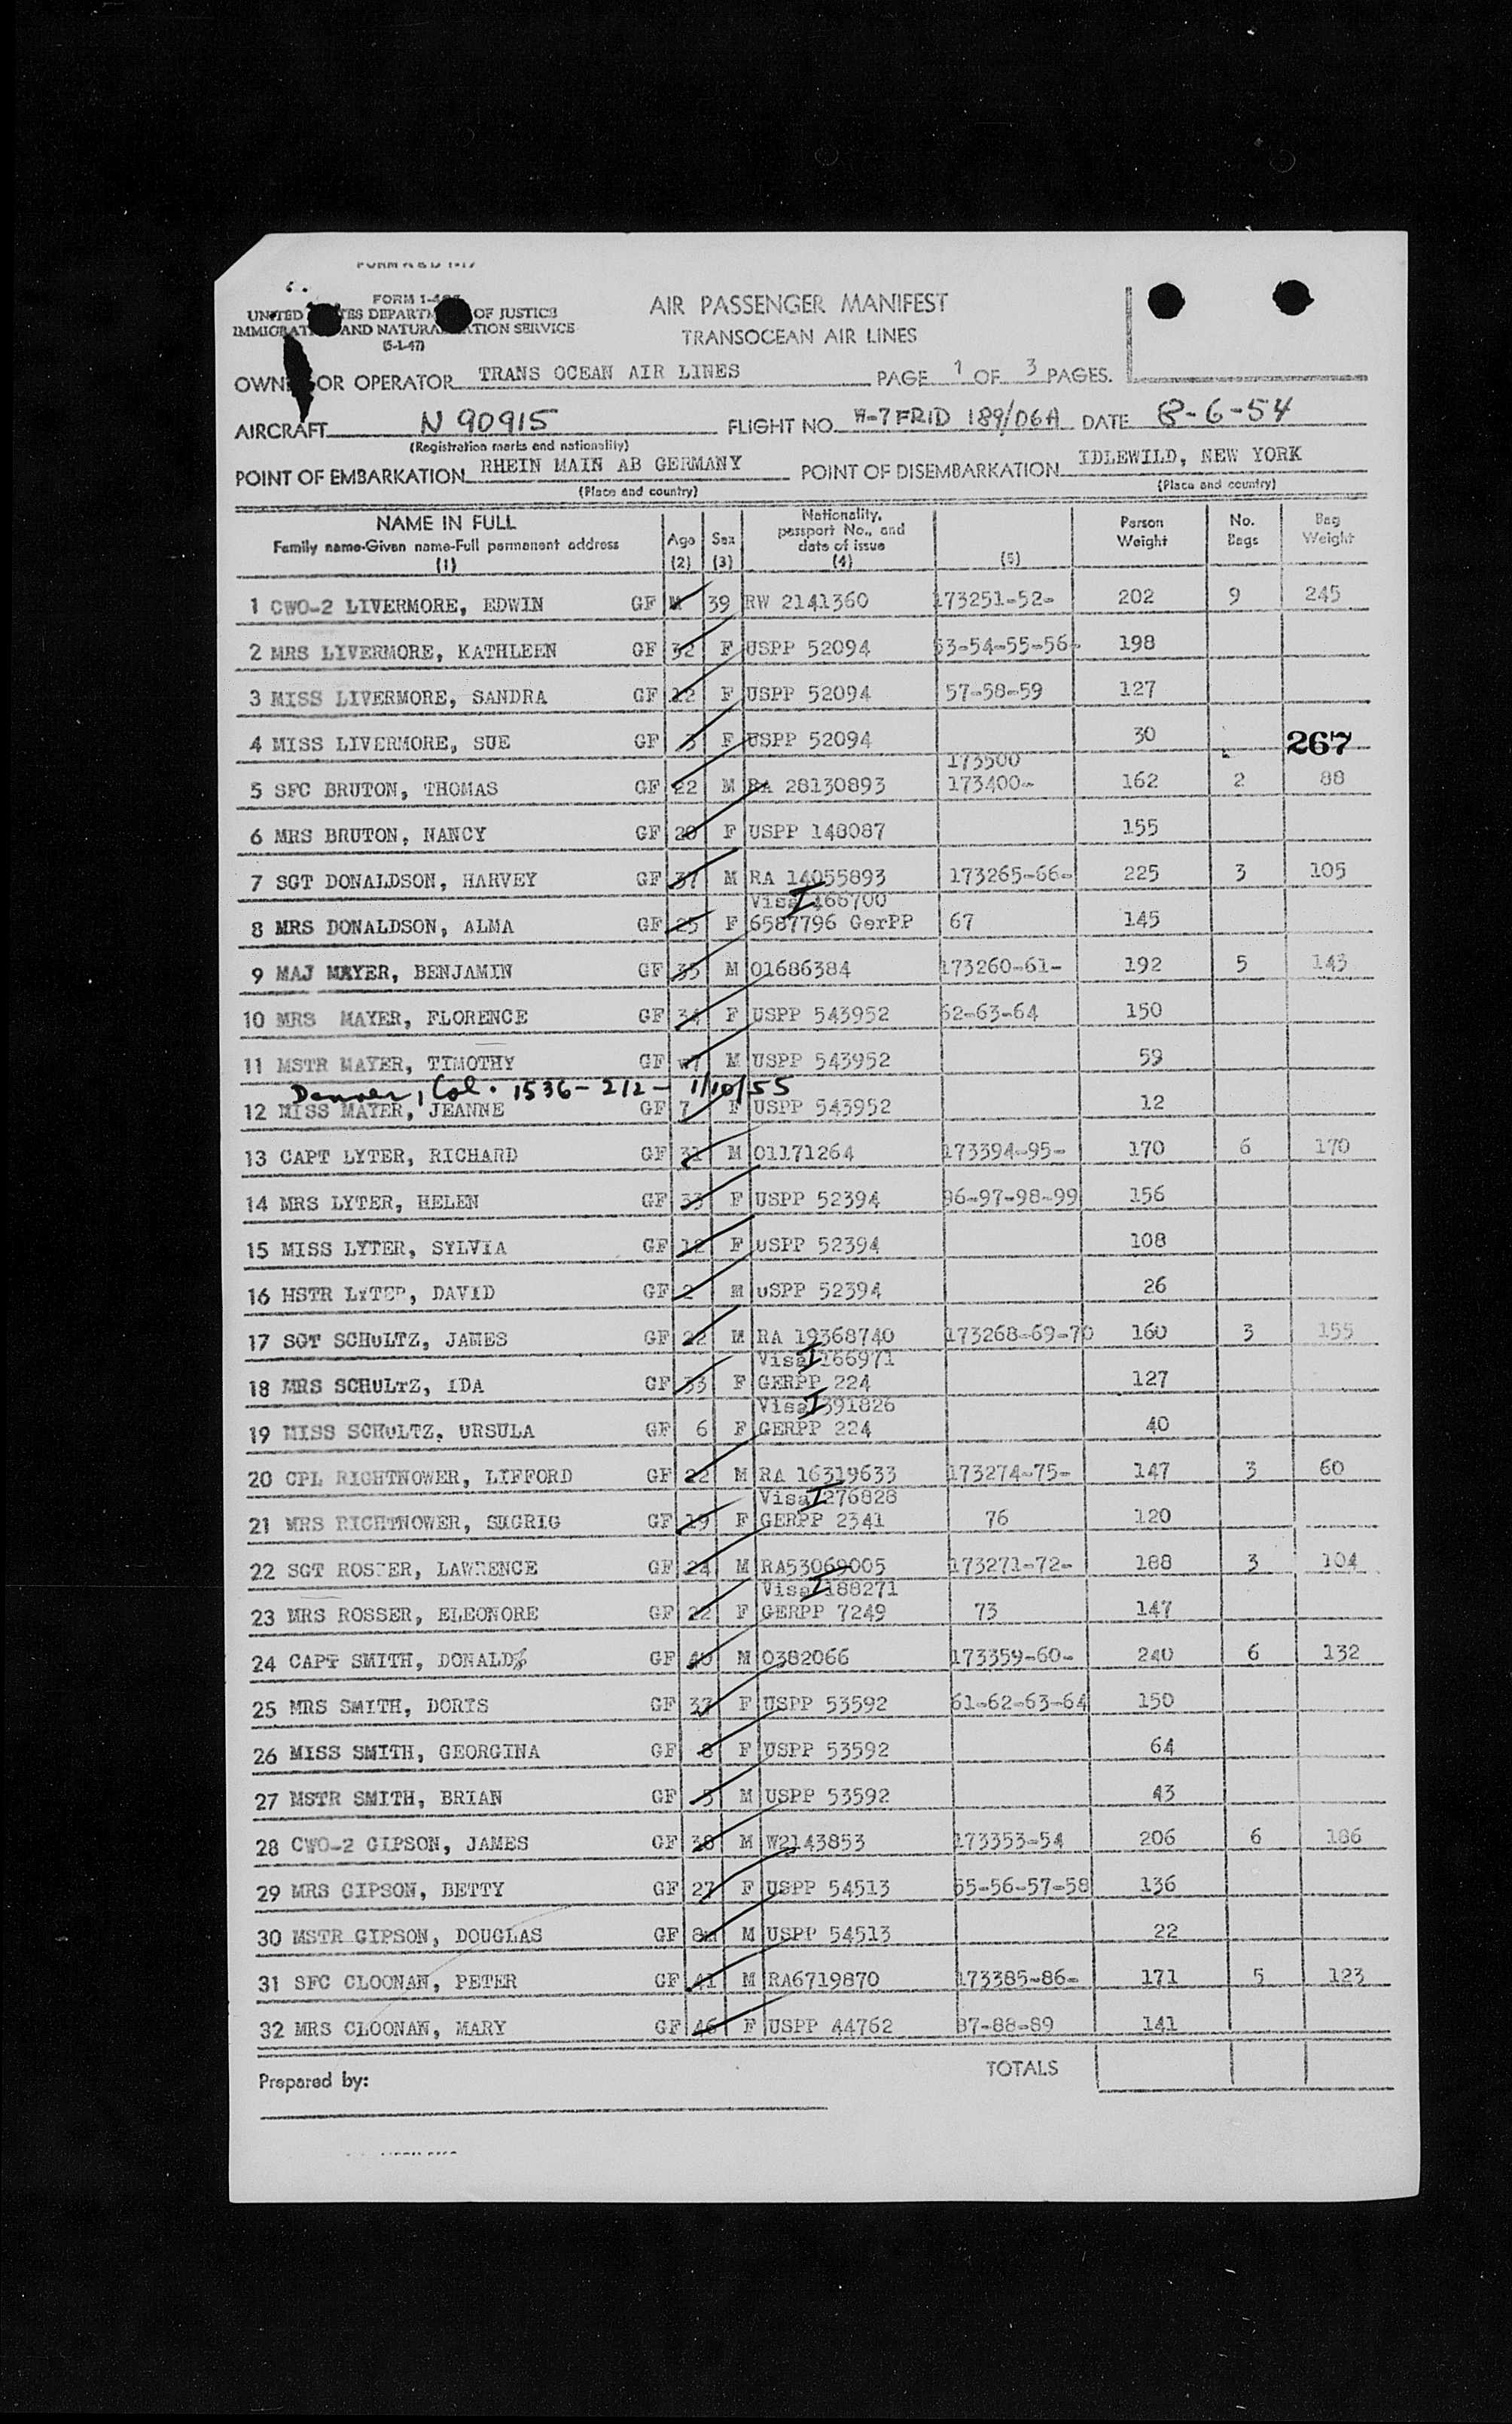 FORM A & D 1-17
FORM 1-466
UNITED STATES DEPARTMENT OF JUSTICE
IMMIGRATION AND NATURALIZATION SERVICE
(5-1-47)
AIR PASSENGER MANIFEST
TRANSOCEAN AIR LINES
OWNER OR OPERATOR TRANS OCEAN AIR LINES PAGE 1 OF 3 PAGES.
AIRCRAFT N 90915 FLIGHT NO. W-7 FRID 189/06A DATE 8-6-54
(Registration marks and nationality)
POINT OF EMBARKATION RHEIN MAIN AB GERMANY POINT OF DISEMBARKATION IDLEWILD, NEW YORK
(Place and country) (Place and country)
NAME IN FULL Family name-Given name-Full permanent address (1) Age (2) Sex (3) Nationality, passport No., and date of issue (4) (5) Person Weight No. Bags Bag Weight
1 CWO-2 LIVERMORE, EDWIN GF M 39 RW 2141360 173251-52- 202 9 245
2 MRS LIVERMORE, KATHLEEN GF 32 F USPP 52094 53-54-55-56- 198
3 MISS LIVERMORE, SANDRA GF 12 F USPP 52094 57-58-59 127
4 MISS LIVERMORE, SUE GF 3 F USPP 52094 30 267
173500
5 SFC BRUTON, THOMAS GF 22 M RA 28130893 173400- 162 2 88
6 MRS BRUTON, NANCY GF 20 F USPP 148087 155
7 SGT DONALDSON, HARVEY GF 37 M RA 14055893 173265-66- 225 3 105
Visa I 166700
8 MRS DONALDSON, ALMA GF 25 F 6587796 GerPP 67 145
9 MAJ MAYER, BENJAMIN GF 35 M 01686384 173260-61- 192 5 143
10 MRS MAYER, FLORENCE GF 34 F USPP 543952 62-63-64 150
11 MSTR MAYER, TIMOTHY GF 7 M USPP 543952 59
Denver, Col. 1536-212- 1/10/55
12 MISS MAYER, JEANNE GF 7 F USPP 543952 12
13 CAPT LYTER, RICHARD GF 31 M 01171264 173394-95- 170 6 170
14 MRS LYTER, HELEN GF 33 F USPP 52394 96-97-98-99 156
15 MISS LYTER, SYLVIA GF 12 F uSPP 52394 108
16 MSTR LYTER, DAVID GF 2 M uSPP 52394 26
17 SGT SCHuLTZ, JAMES GF 22 M RA 19368740 173268-69-70 160 3 155
Visa I 166971
18 MRS SCHULTZ, IDA GF 33 F GERPP 224 127
Visa I 391826
19 MISS SCHuLTZ, URSULA GF 6 F GERPP 224 40
20 CPL RIGHTNOWER, LIFFORD GF 22 M RA 16319633 173274-75- 147 3 60
Visa I 276828
21 MRS RIGHTNOWER, SIGRIG GF 19 F GERPP 2341 76 120
22 SGT ROSSER, LAWRENCE GF 24 M RA53069005 173271-72- 188 3 104
Visa I 188271
23 MRS ROSSER, ELEONORE GF 22 F GERPP 7249 73 147
24 CAPT SMITH, DONALD GF 40 M 0382066 173359-60- 240 6 132
25 MRS SMITH, DORIS GF 37 F USPP 53592 61-62-63-64 150
26 MISS SMITH, GEORGINA GF 8 F USPP 53592 64
27 MSTR SMITH, BRIAN GF 5 M USPP 53592 43
28 CWO-2 GIPSON, JAMES GF 38 M W2143853 173353-54 206 6 186
29 MRS GIPSON, BETTY GF 27 F USPP 54513 55-56-57-58 136
30 MSTR GIPSON, DOUGLAS GF 8m M USPP 54513 22
31 SFC CLOONAN, PETER GF 41 M RA6719870 173385-86- 171 5 123
32 MRS CLOONAN, MARY GF 46 F USPP 44762 87-88-89 141
TOTALS
Prepared by: